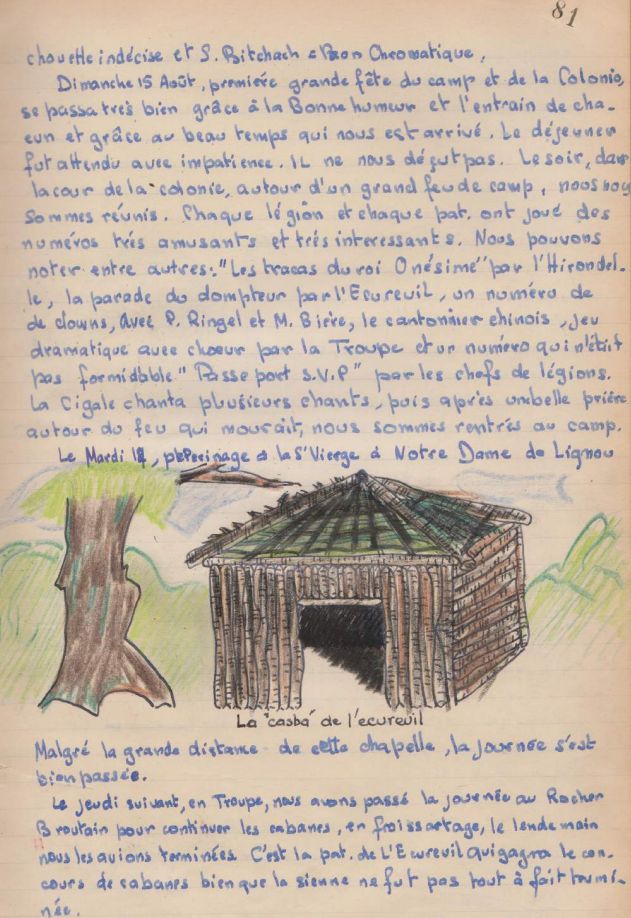 81
chouette indécise et S. Bitchach = Paon Chromatique,
Dimanche 15 Août, première grande fête du camp et de la Colonie,
se passa très bien grâce à la Bonne humeur et l'entrain de cha-
cun et grâce au beau temps qui nous est arrivé. Le déjeuner
fut attendu avec impatience. IL ne nous déçut pas. Le soir, dans
la cour de la colonie, autour d'un grand feu de camp, nous nous
sommes réunis. Chaque légion et chaque pat. ont joué des
numéros très amusants et très interessants. Nous pouvons
noter entre autres: "Les tracas du roi Onésime" par l'Hirondel-
le, la parade du dompteur par l'Ecureuil, un numéro de
de clowns, avec P. Ringel et M. Bière, le cantonnier chinois, jeu
dramatique avec choeur par la Troupe et un numéro qui n'était
pas formidable "Passe port S.V.P" par les chefs de légions.
La Cigale chanta plusieurs chants, puis après une belle prière
autour du feu qui mourait, nous sommes rentrés au camp.
Le Mardi, pélerinage à la St Vierge à Notre Dame de Lignou
La "casba" de l'ecureuil
Malgré la grande distance de cette chapelle, la journée s'est
bien passée.
Le jeudi suivant, en Troupe, nous avons passé la journée au Rocher
Broutain pour continuer les cabanes, en froissartage, le lendemain
nous les avions terminées. C'est la pat. de L'Ecureuil qui gagna le con-
cours de cabanes bien que la sienne ne fut pas tout à fait termi-
née.